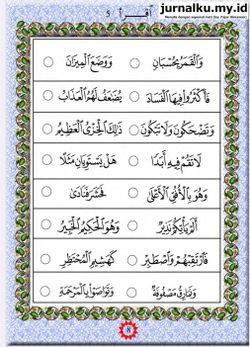 jurnalku.my.id
٥ اقرأ 5
وَالْقَمَرُ بِحُسْبَانٍ ○ وَوَضَعَ الْمِيزَانَ ○
فَأَكْثَرُوا فِيهَا الْفَسَادَ ○ يُضَاعَفُ لَهُمُ الْعَذَابُ ○
وَتَضْحَكُونَ وَلَا تَبْكُونَ ○ ذَٰلِكَ الْخِزْيُ الْعَظِيمُ ○
لَا تَقُمْ فِيهِ أَبَدًا ○ هَلْ يَسْتَوِيَانِ مَثَلًا ○
وَهُوَ بِالْأُفُقِ الْأَعْلَىٰ ○ فَحَشَرَ فَنَادَىٰ ○
أَلَمْ يَأْتِكُمْ نَذِيرٌ ○ وَهُوَ الْحَكِيمُ الْخَبِيرُ ○
فَارْتَقِبْهُمْ وَاصْطَبِرْ ○ كَهَشِيمِ الْمُحْتَظِرِ ○
وَنَمَارِقُ مَصْفُوفَةٌ ○ وَتَوَاصَوْا بِالْمَرْحَمَةِ ○
8